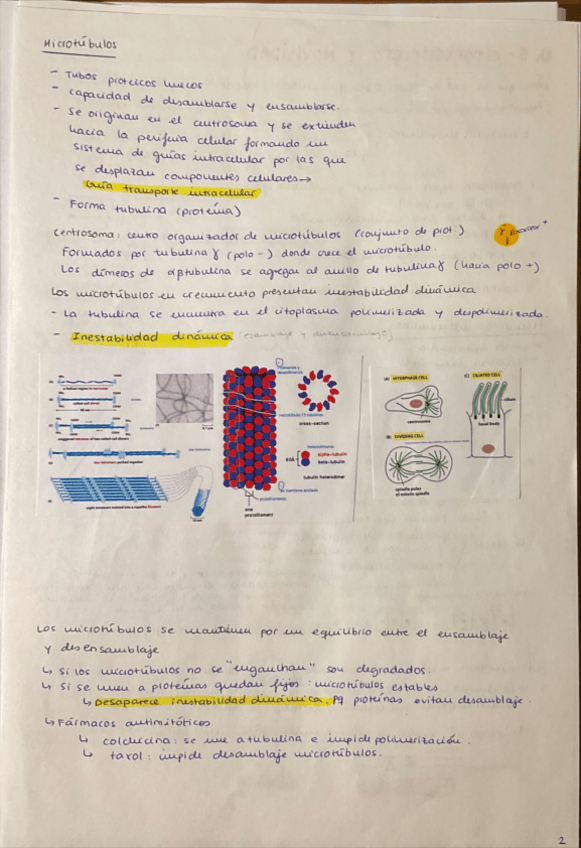 Microtúbulos
- Tubos proteicos huecos
- capacidad de desamblarse y ensamblarse.
- Se originan en el centrosoma y se extienden
hacia la periferia celular formando un
sistema de guías intracelular por las que
se desplazan componentes celulares →
Guía transporte intracelular
- Forma tubulina (proteína)
centrosoma: centro organizador de microtúbulos (conjunto de prot.)
Formados por tubulina γ (polo -) donde crece el microtúbulo.
Los dímeros de αβtubulina se agregan al anillo de tubulina γ (hacia polo +)
Los microtúbulos en crecimiento presentan inestabilidad dinámica
- La tubulina se encuentra en el citoplasma polimerizada y despolimerizada.
- Inestabilidad dinámica (ensamblaje y desensamblaje)
cross-section
alpha-tubulin
beta-tubulin
tubulin heterodimer
one
protofilament
(A) INTERPHASE CELL
centrosome
(B) DIVIDING CELL
spindle poles
of mitotic spindle
(C) CILIATED CELL
cilium
basal body
Los microtúbulos se mantienen por un equilibrio entre el ensamblaje
y desensamblaje
↳ Si los microtúbulos no se "enganchan" son degradados.
↳ Si se unen a proteínas quedan fijos: microtúbulos estables
↳ Desaparece inestabilidad dinámica, pq proteínas evitan desamblaje.
↳ Fármacos antimitóticos
↳ colchicina: se une a tubulina e impide polimerización.
↳ taxol: impide desamblaje microtúbulos.
2